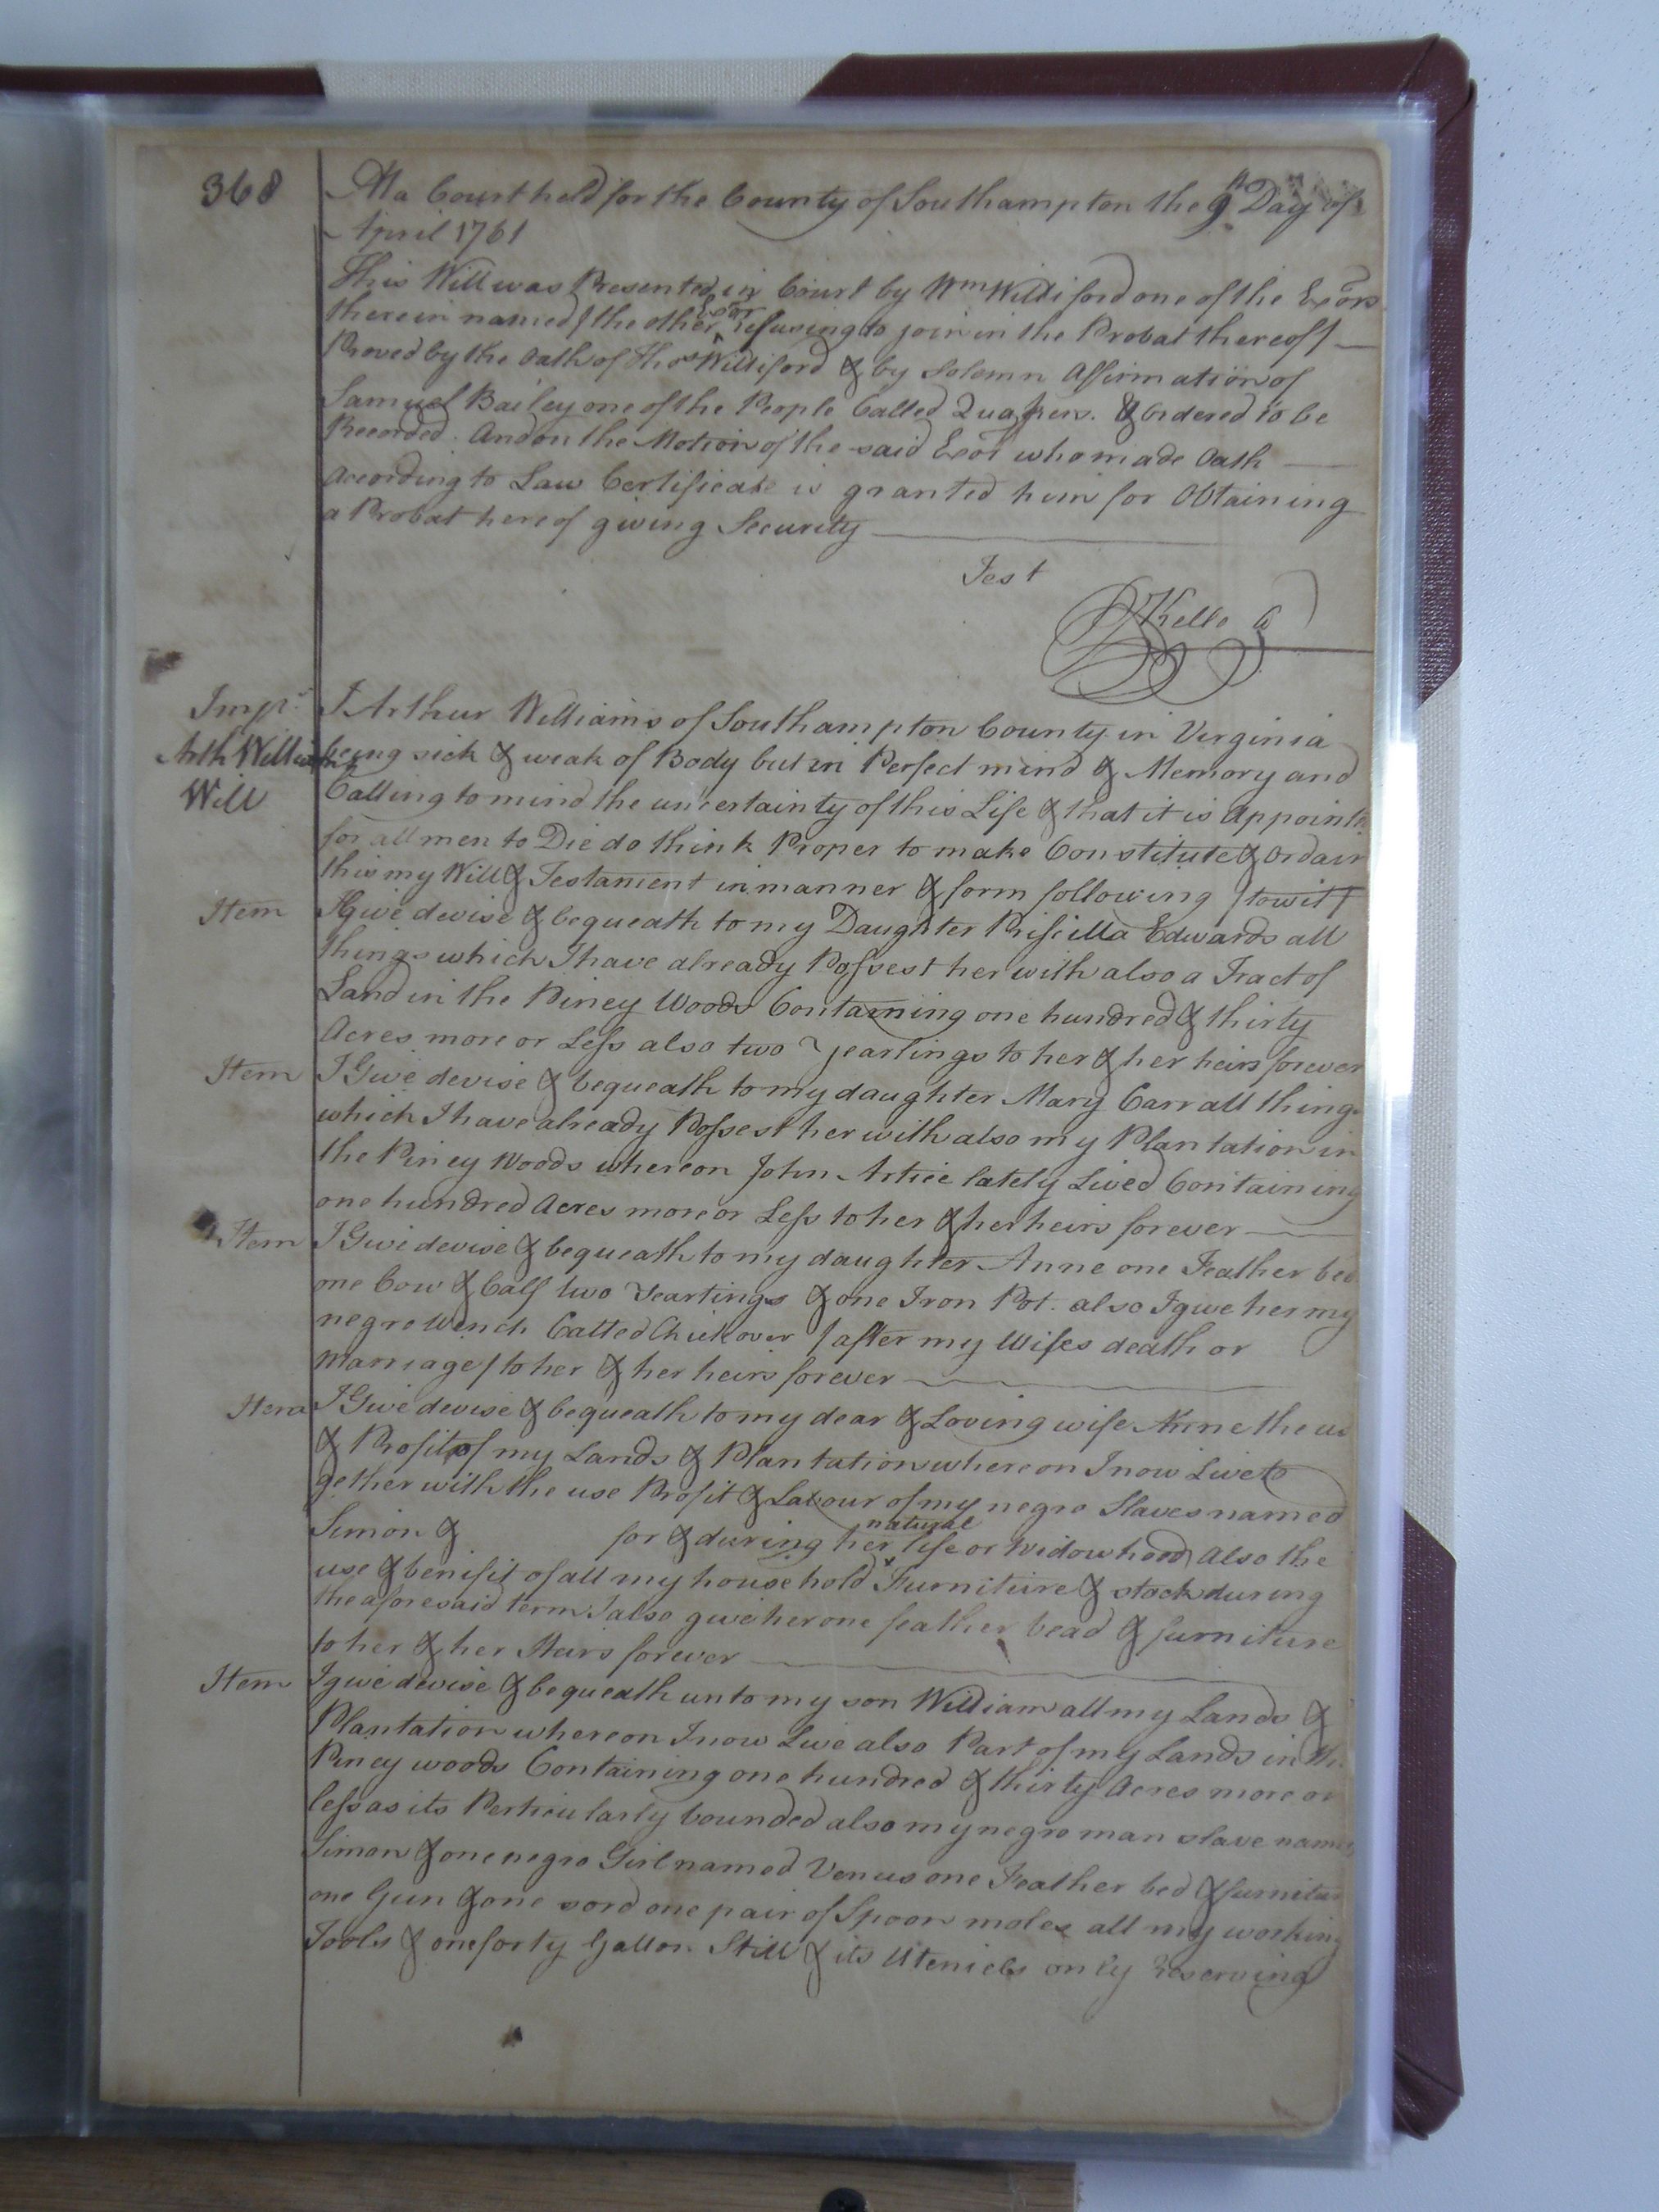 368
At a Court held for the County of Southampton the 9th Day of
April 1761
This Will was Presented in Court by Wm Williford one of the Exors
therein named / the other Exor refusing to join in the Probat thereof / —
Proved by the Oath of Thos Williford & by Solemn Affirmation of
Samuel Bailey one of the People Called Quakers. & Ordered to be
Recorded. And on the Motion of the said Exor who made Oath —
According to Law Certificate is granted him for Obtaining
a Probat hereof giving Security —
Test
Kello
Arth Williams
Will
I Arthur Williams of Southampton County in Virginia
being sick & weak of Body but in Perfect mind & Memory and
Calling to mind the uncertainty of this Life & that it is Appointed
for all men to Die do think Proper to make Constitute & Ordain
this my Will & Testament in manner & form following / towit /
Item I give devise & bequeath to my Daughter Priscilla Edwards all
things which I have already Possest her with also a Tract of
Land in the Piney Woods Containing one hundred & thirty
Acres more or Less also two yearlings to her & her heirs forever
Item I Give devise & bequeath to my daughter Mary Carr all things
which I have already Possest her with also my Plantation in
the Piney Woods whereon John Artice lately Lived Containing
one hundred Acres more or Less to her & her heirs forever —
Item I Give devise & bequeath to my daughter Anne one Feather bed
one Cow & Calf two Yearlings & one Iron Pot. also I give her my
negro Wench Called / after my Wifes death or
Marriage / to her & her heirs forever —
Item I Give devise & bequeath to my dear & Loving wife Anne the us
& Profit of my Lands & Plantation whereon I now Live to
gether with the use Profit & Labour of my negro Slaves named
Simon & for & during her natural life or Widowhood Also the
use & benifit of all my household Furniture & stock during
the aforesaid term I also give her one feather bead & furniture
to her & her Heirs forever —
Item I give devise & bequeath unto my son William all my Lands &
Plantation whereon I now Live also Part of my Lands in the
Piney woods Containing one hundred & thirty Acres more or
less as its Perticularly bounded also my negro man slave named
Simon & one negro Girl named Venus one Feather bed & furnitur
one Gun & one sord one pair of Spoon moles all my working
Tools & one forty Gallon Still & its Uteniels only reserving